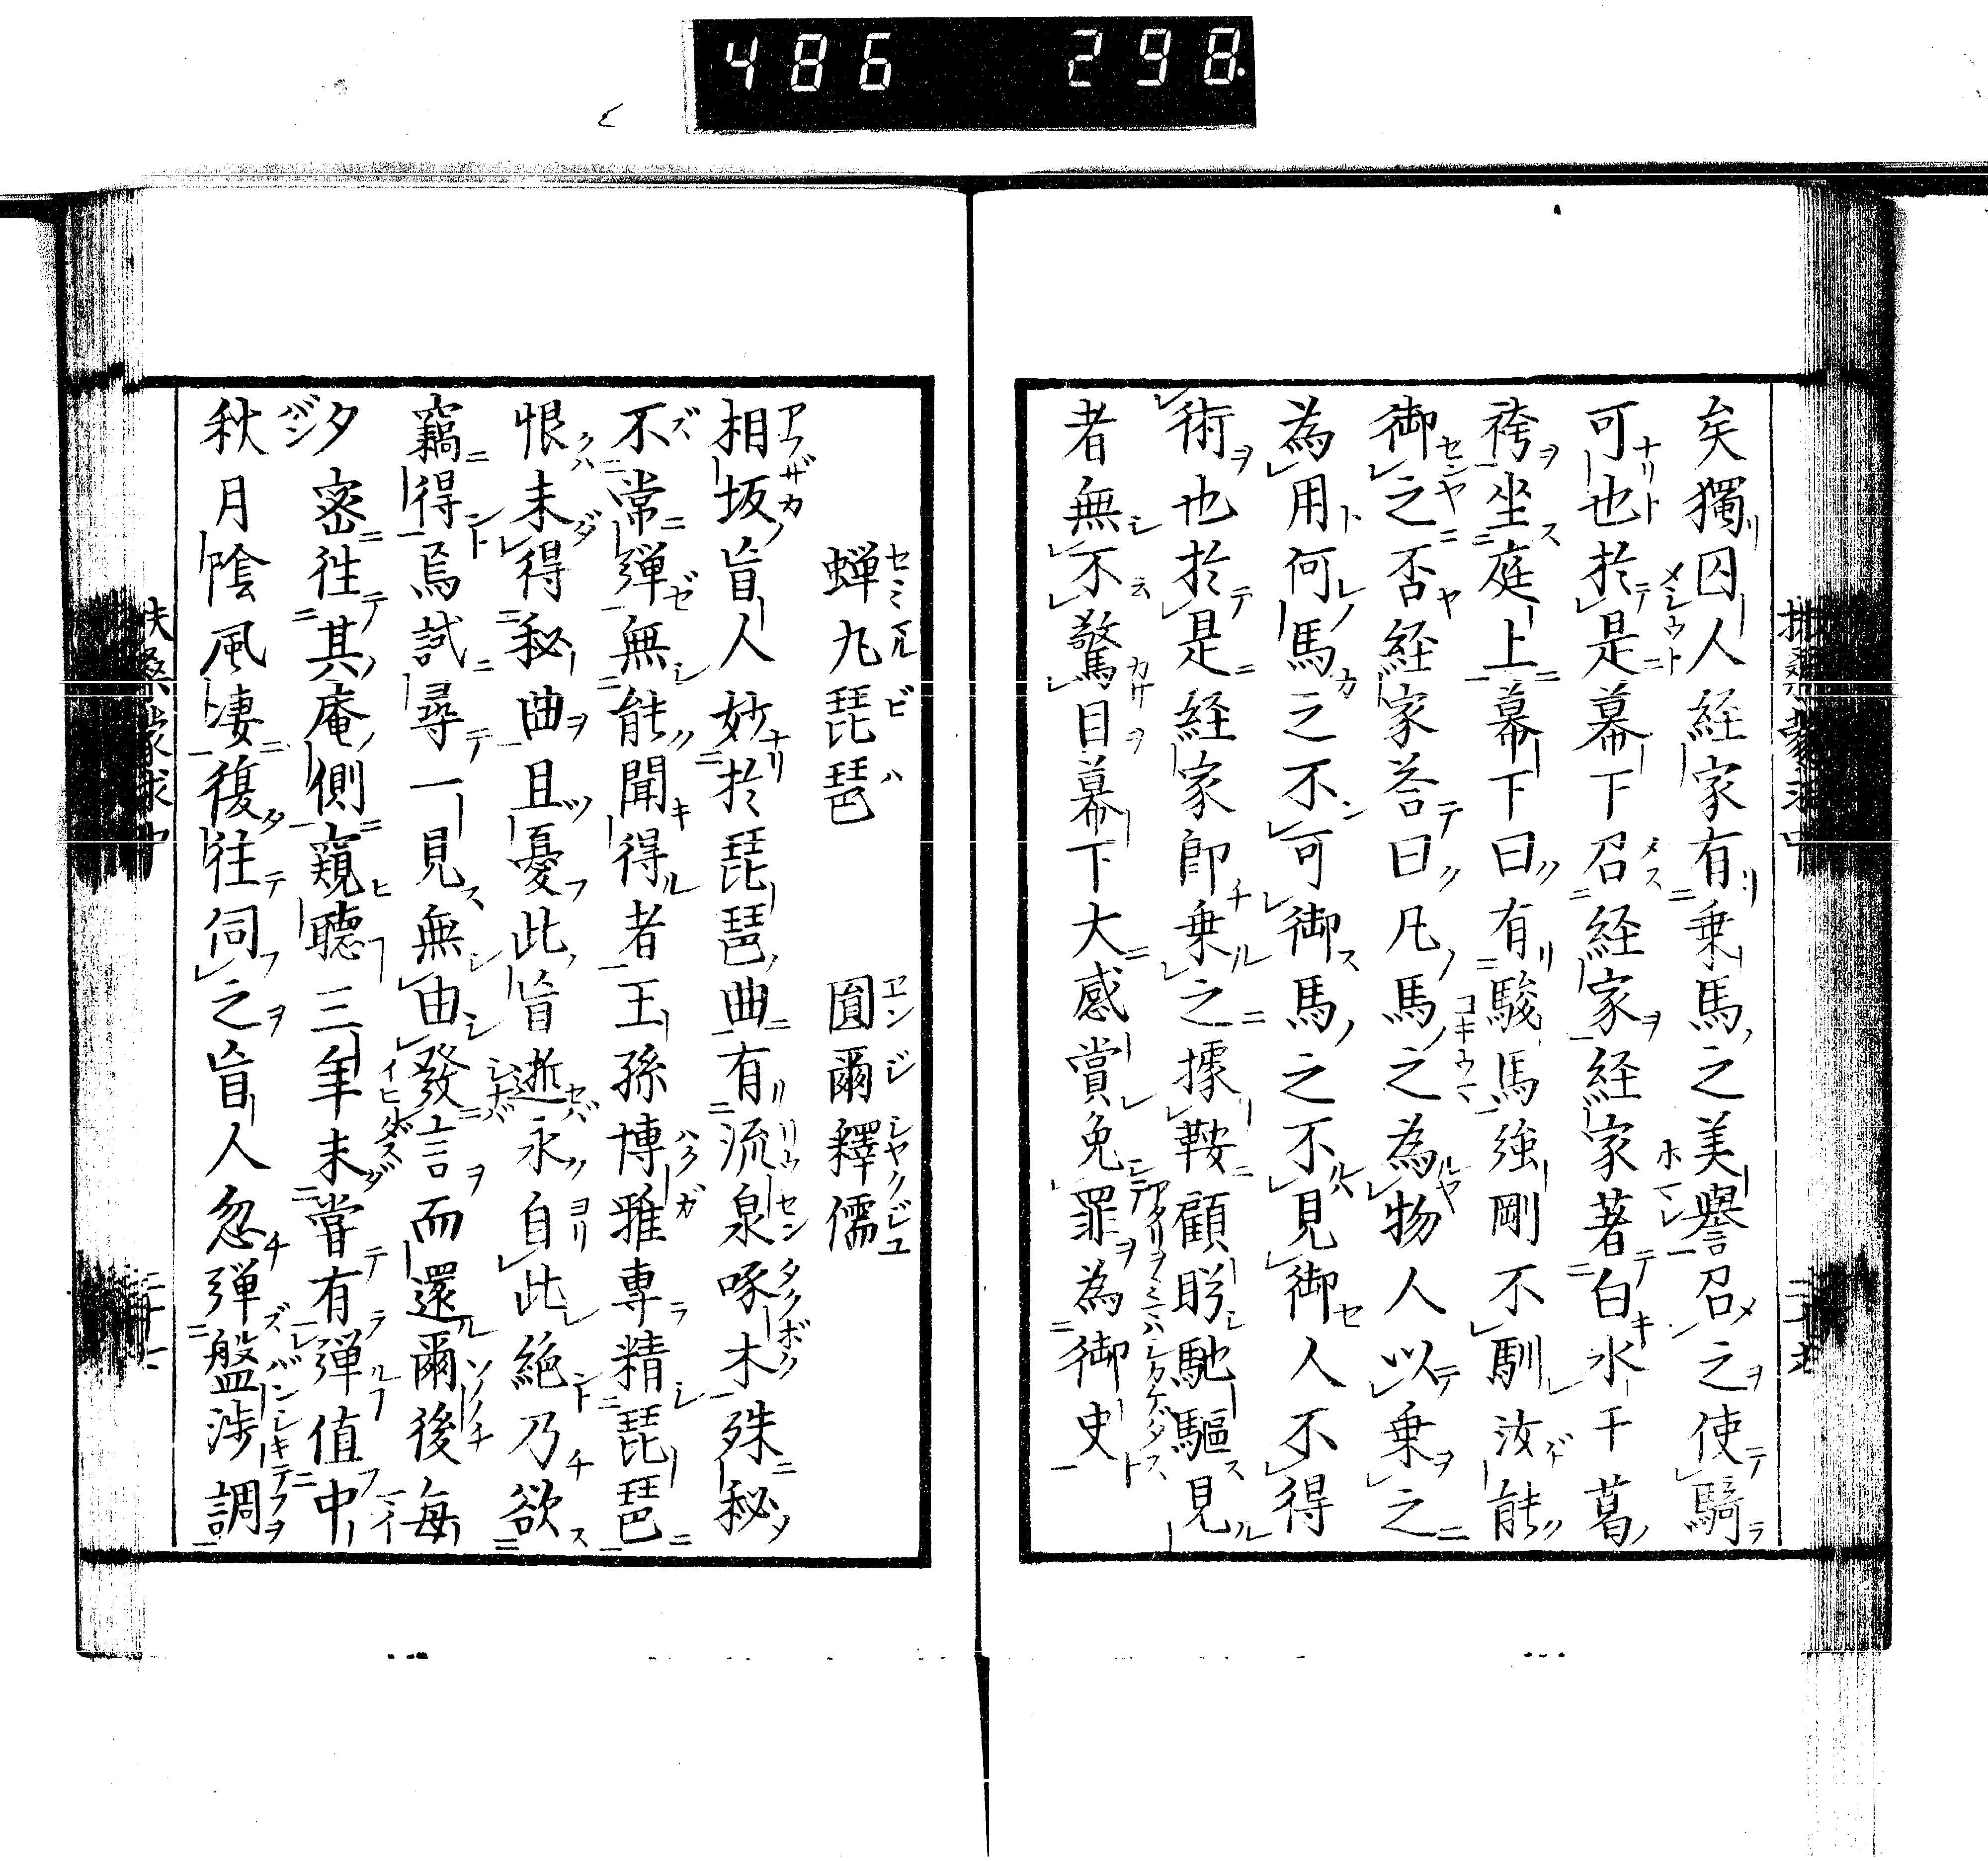 486 298
矣獨囚人経家有乗馬之美譽召之使騎
可也於是幕下召経家経家著白水干葛
袴坐庭上幕下曰有駿馬強剛不馴汝能
御之否経家荅曰凡馬之為物人以乗之
為用何馬之不可御馬之不見御人不得
術也於是経家即乗之據鞍顧眄馳驅見
者無不驚目幕下大感賞免罪為御史
蝉丸琵琶 圓爾釋儒
相坂盲人妙於琵琶曲有流泉啄木殊秘
不常弾無能聞得者王孫博雅専精琵琶
恨未得秘曲且憂此盲逝永自此絶乃欲
竊得焉試尋一見無由發言而還爾後毎
夕密往其庵側窺聽三年未甞有弾値中
秋月陰風凄復往伺之盲人忽弾盤渉調
扶桑蒙求中